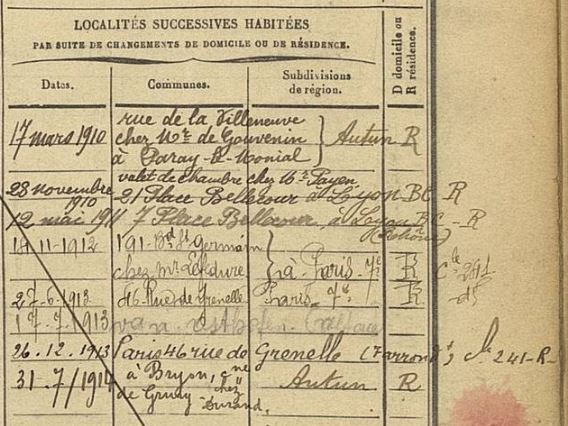 LOCALITÉS SUCCESSIVES HABITÉES
PAR SUITE DE CHANGEMENTS DE DOMICILE OU DE RÉSIDENCE.
Dates.
Communes.
Subdivisions de région.
D domicile ou R résidence.
17 mars 1910
rue de la Villeneuve
chez Mr de Gouvenin
à Paray-le-Monial
Autun R
valet de chambre chez Mr Payen
28 novembre 1910 21 Place Bellecour à Lyon BC R
12 mai 1911 7 Place Bellecour à Lyon BC - R
(Rhône)
11-1912 191 - Bd St Germain
chez Mr
à Paris - 7e R Cle 241
27-6.1913 46 Rue de Grenelle Paris - 7e R
17.7.1913
26.12.1913 Paris 46 rue de Grenelle (7 arrondt) 241-R-
31.7/1914 à Bryon, cne
de Grury chez Durand,
Autun R